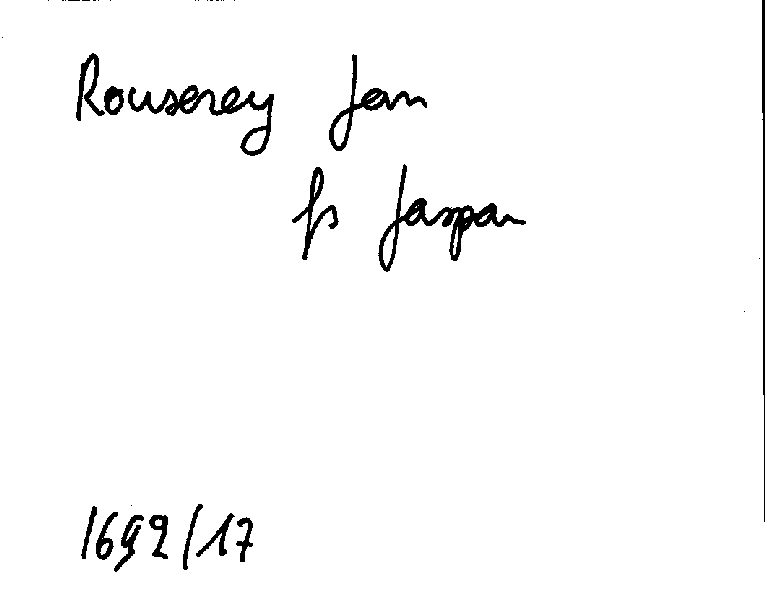 Rouserey Jan
fs Jaspar
1692/17